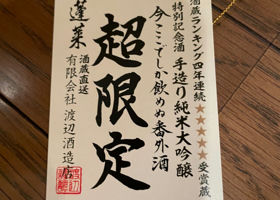 酒蔵ランキング四年連続★★★★★受賞蔵
特別記念酒 手造り純米大吟醸
今ここでしか飲めぬ番外酒
超限定
酒蔵直送
有限会社 渡辺酒造店
蓬莱